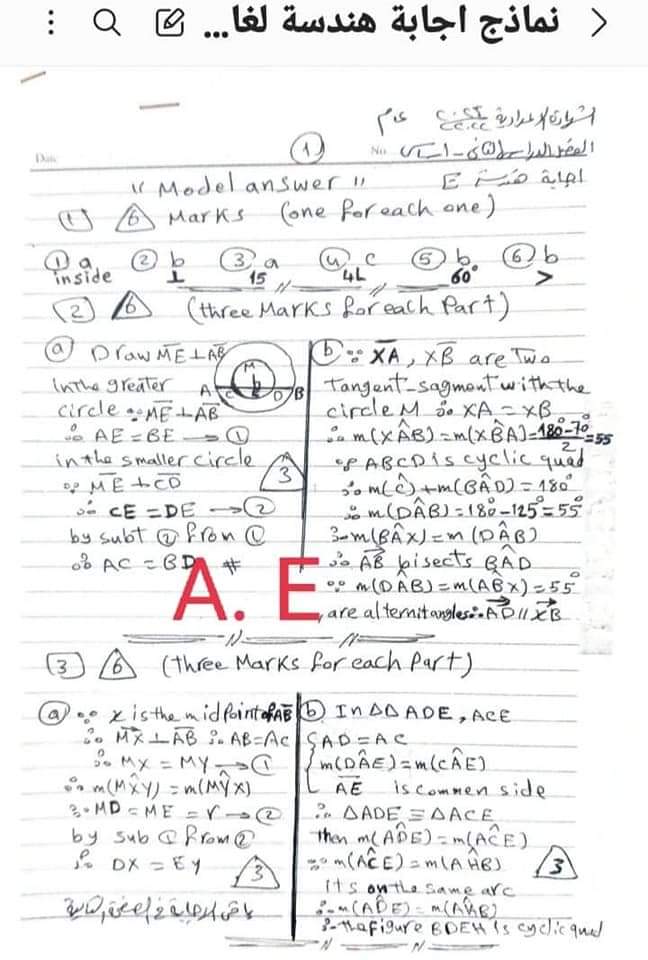 نماذج اجابة هندسة لغا...
الشهادة الإعدادية
Date
No
1
اجابة هندسة E
"Model answer"
1 6 Marks (one for each one)
1 a 2 b 3 a 4 c 5 b 6 b
inside ⊥ 15 4L 60° >
2 6 (three Marks for each Part)
a Draw ME ⊥ AB
in the greater
circle ∵ ME ⊥ AB
∴ AE = BE → 1
in the smaller circle
∵ ME ⊥ CD
3
∴ CE = DE → 2
by subt 2 from 1
∴ AC = BD #
M
A C E D B
b ∵ XA, XB are Two
Tangent-sagment with the
circle M ∴ XA = XB
∴ m(XÂB) = m(XB̂A) = 180-70/2 = 55
∵ ABCD is cyclic quad
∴ m(Ĉ) + m(BÂD) = 180°
∴ m(DÂB) = 180-125° = 55°
m(BÂX) = m(DÂB)
∴ AB bisects BÂD
∵ m(DÂB) = m(AB̂X) = 55°
, are alternit angles ∴ AD // XB
A. E
3 6 (three Marks for each Part)
a ∵ X is the midpoint of AB
∴ MX ⊥ AB ∴ AB = AC
∴ MX = MY → 1
∴ m(MX̂Y) = m(MŶX)
∵ MD = ME = r → 2
by sub 1 from 2
∴ DX = EY
3
b In ΔΔ ADE, ACE
{ AD = AC
m(DÂE) = m(CÂE)
AE is commen side
∴ ΔADE ≡ ΔACE
then m(AD̂E) = m(AĈE)
∵ m(AĈE) = m(AĤB)
3
its on the same arc
∴ m(AD̂E) = m(AĤB)
∴ the figure BDEH is cyclic quad